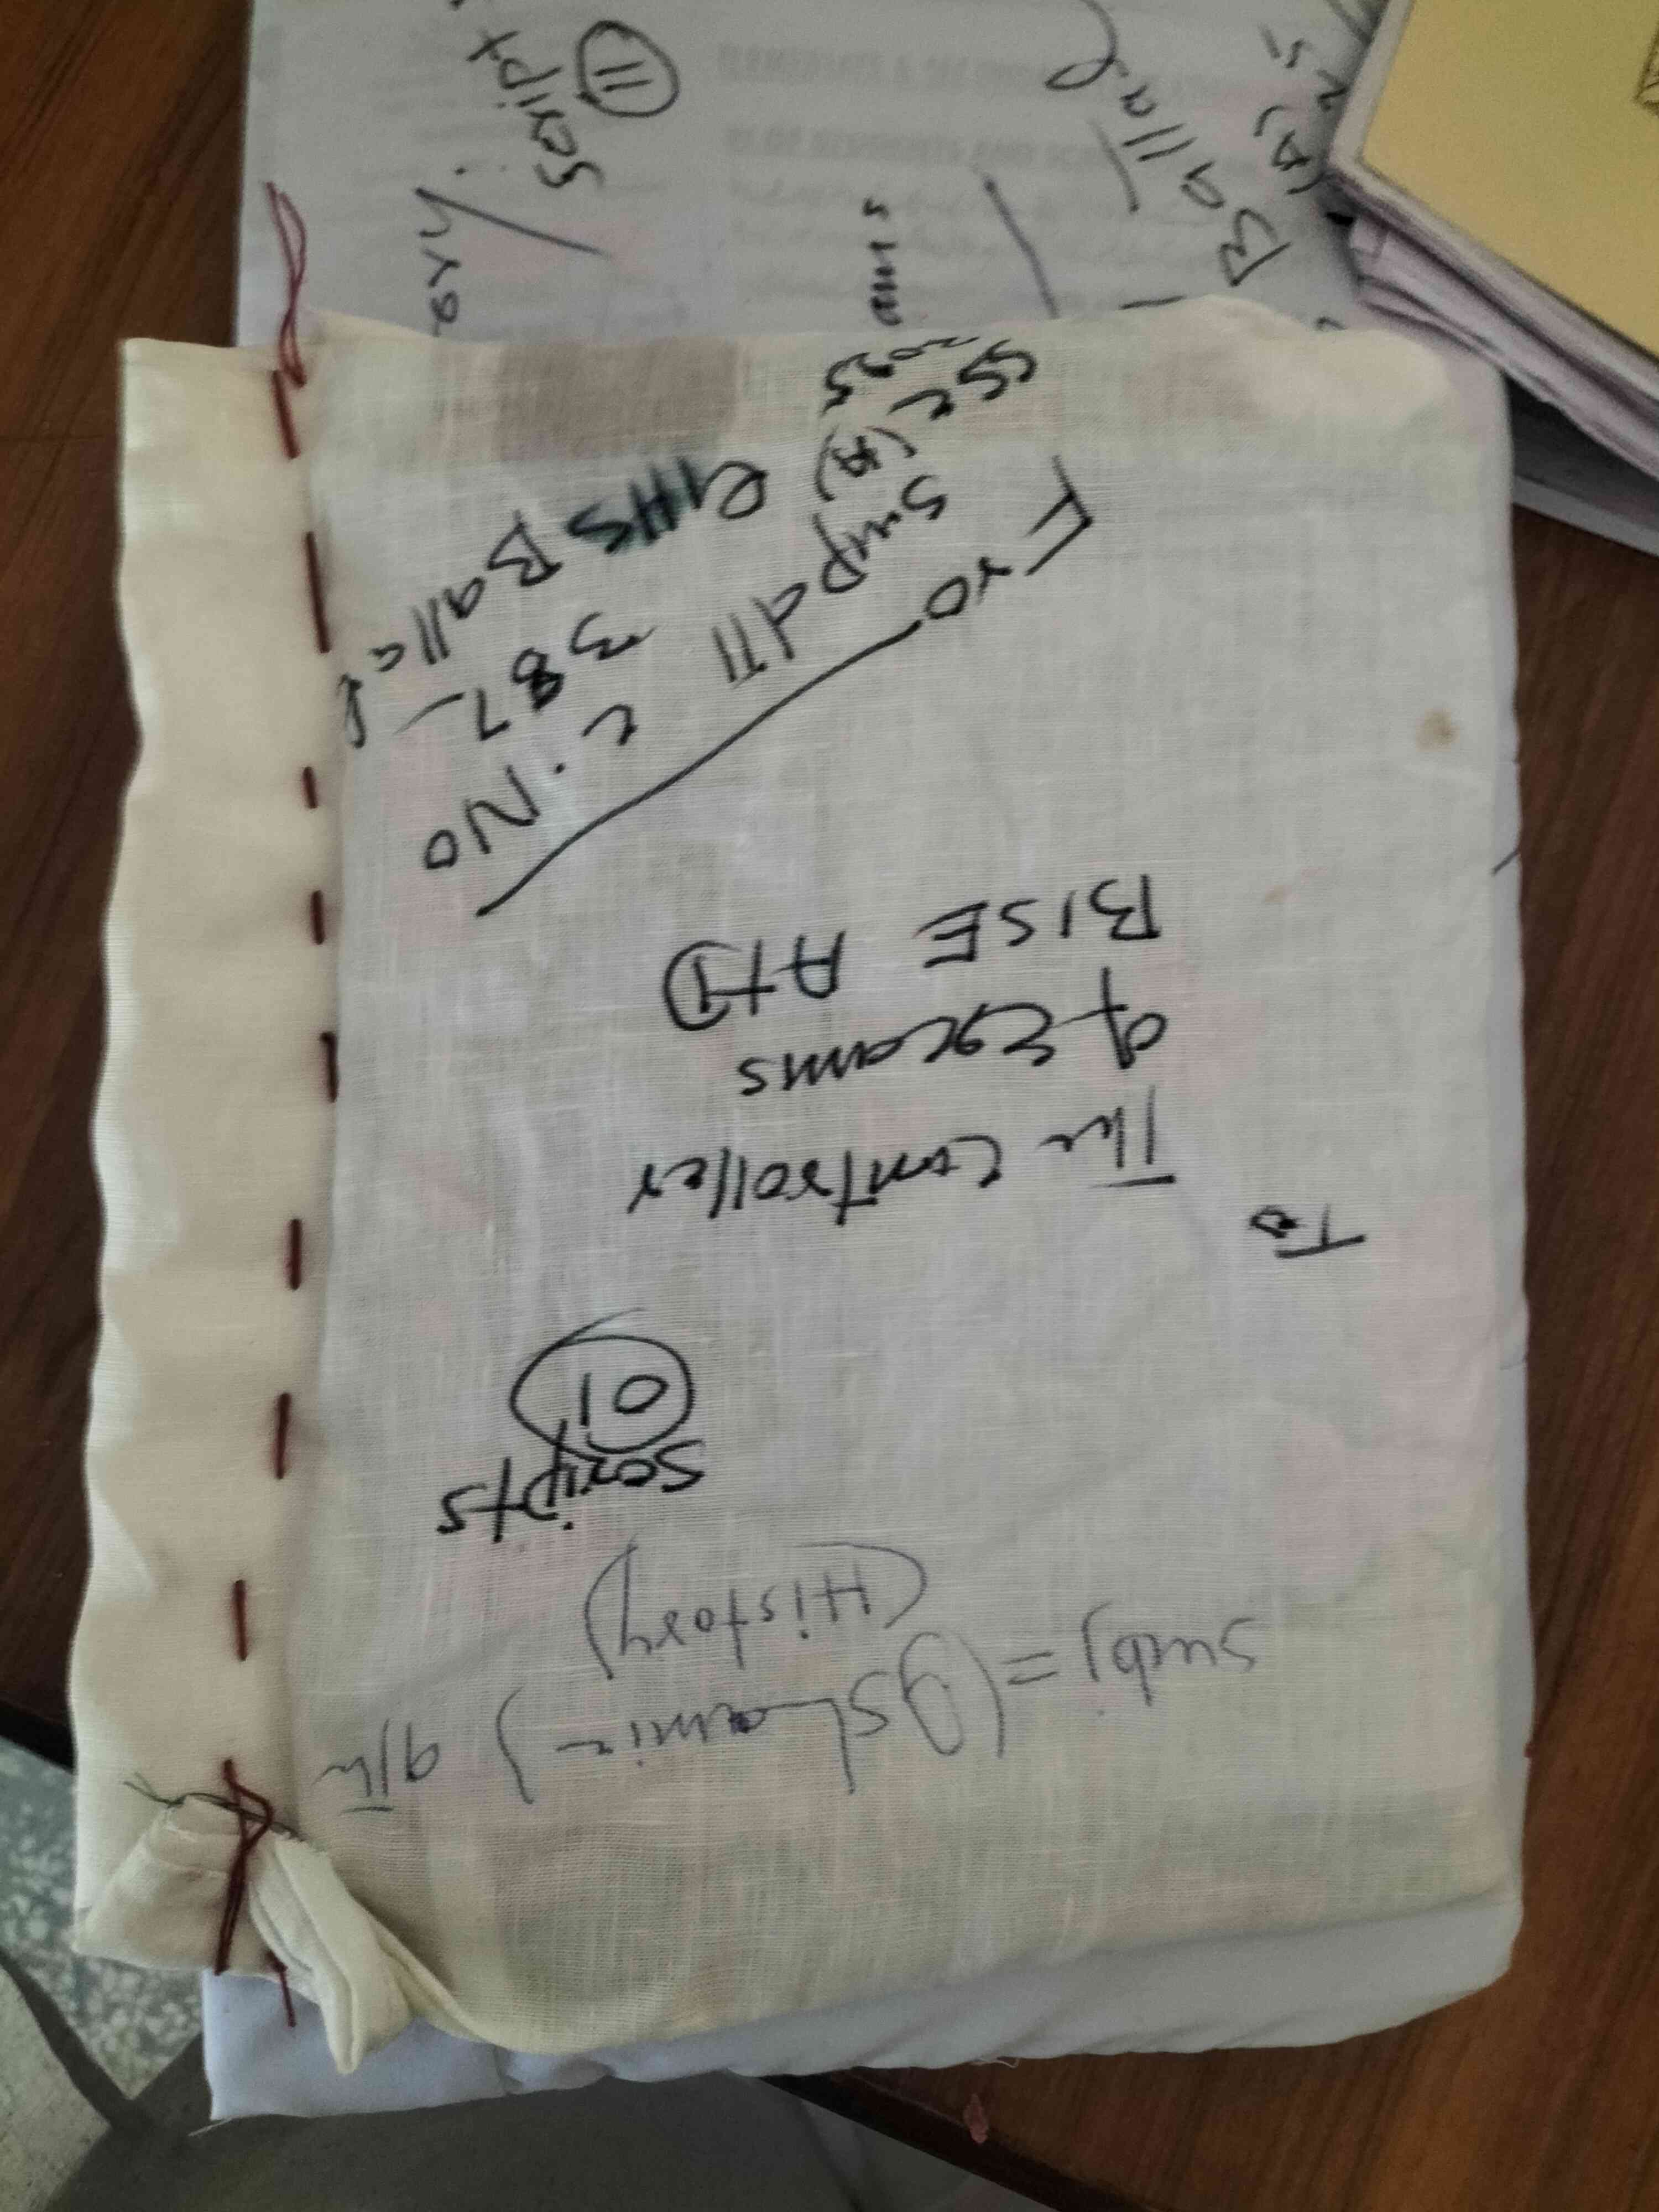 Subj = (Islamic) 9th
(History)
Scripts
01
To
The Controller
of Exams
BISE ATD
From
Supdtt
C. No
387-
GHS Ballal
SSC (A)
2025
Script
11
Ballal